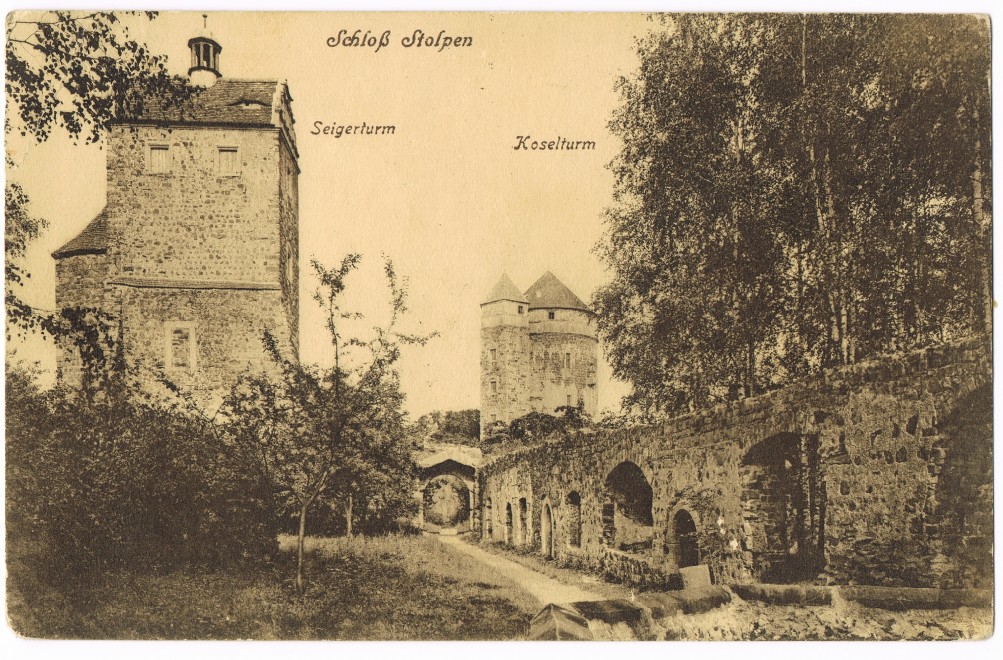 Schloß Stolpen
Seigerturm
Koselturm